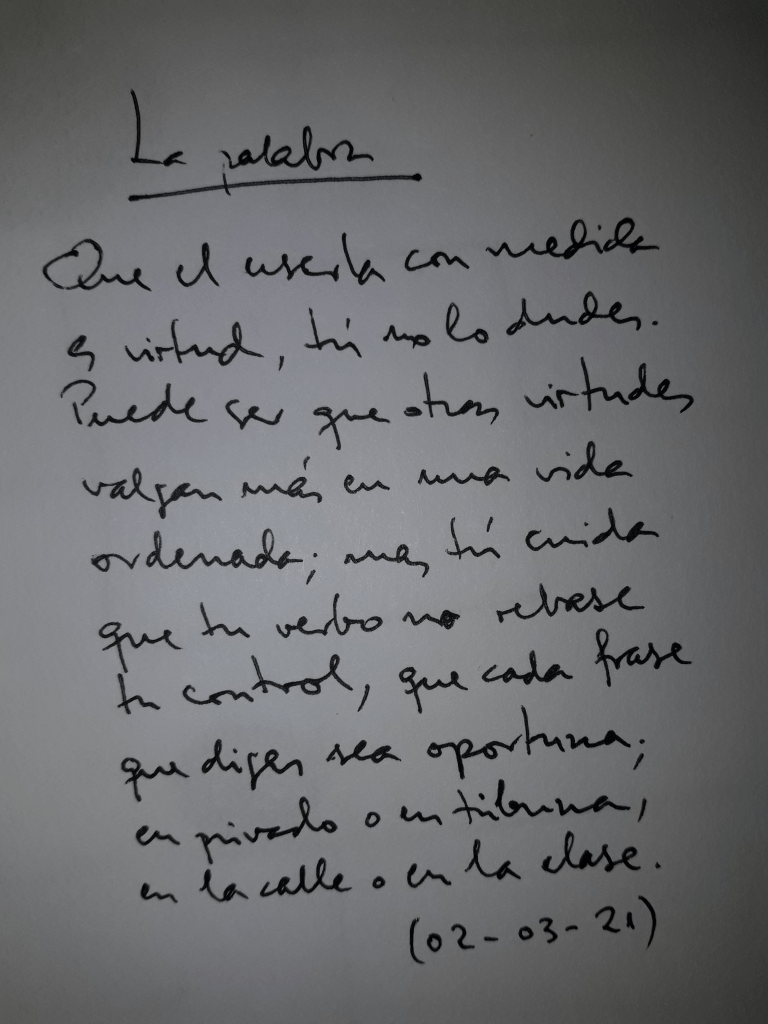 La palabra
Que el usarla con medida
es virtud, tú no lo dudes.
Puede ser que otras virtudes
valgan más en una vida
ordenada; mas tú cuida
que tu verbo no rebase
tu control, que cada frase
que digas sea oportuna;
en privado o en tribuna,
en la calle o en la clase.
(02-03-21)